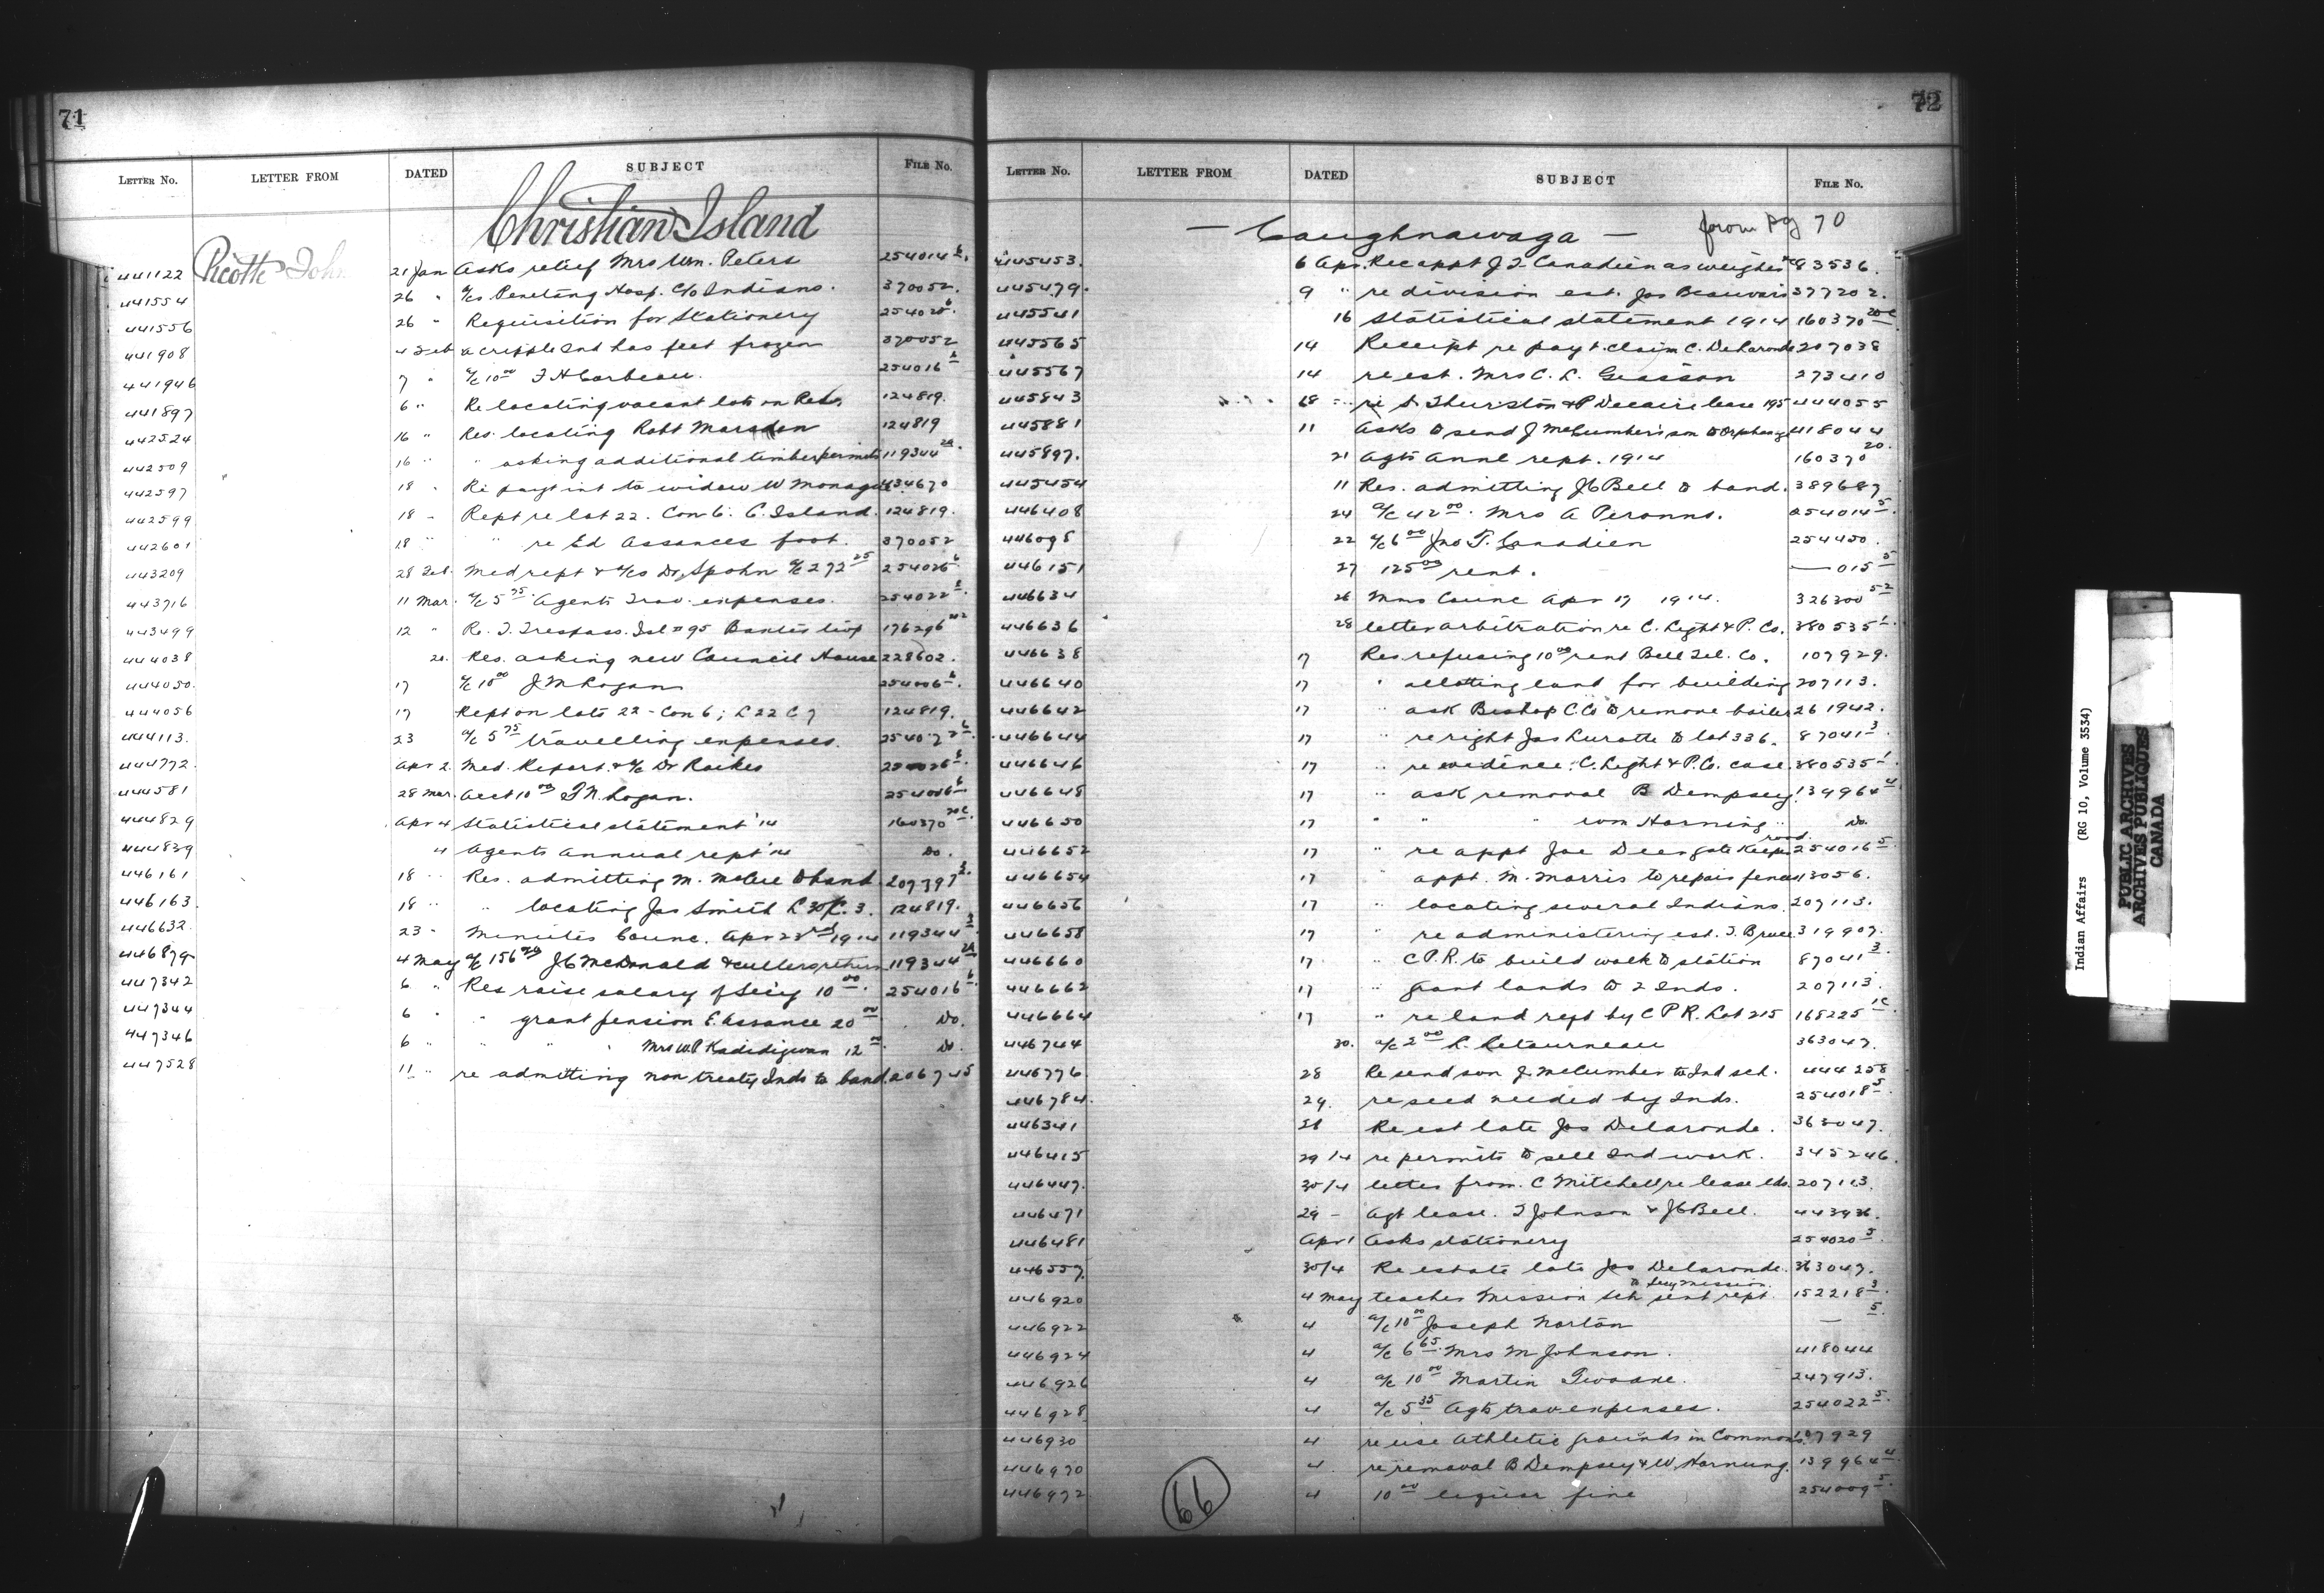 71
LETTER NO. LETTER FROM DATED SUBJECT FILE NO.
Christian Island
441122 Picotte John 21 Jan Asks relief Mrs Wm. Peters 254014 6.
441554 26 " a/cs Penetang Hosp. c/o Indians. 370052.
441556 26 " Requisition for Stationery 254020 6.
441908 4 Feb a cripple Ind has feet frozen 370052
441946 7 " a/c 10 00 F H Corbeau. 254016 6
441897 6 " Re locating vacant lots on Res. 124819.
442524 16 " Res. locating Robt Marsden 124819
442509 16 " " asking additional timber permits 119344 2A
442597 18 " Re payt int to widow W Monague 434670
442599 18 " Rept re lot 22. Con 6. C. Island. 124819.
442601 18 " " re Ed Assances foot. 370052
443209 28 Feb. Med rept & a/cs Dr. Spohn a/c 272 25 254026 6
443716 11 Mar. a/c 5 75 Agents Trav. expenses. 254022 6.
443499 12 " Re. T. Trespass. Isl # 95 176296
444038 20. Res. asking new Council House 228602.
444050. 17 a/c 10 00 J M Logan 254006 6.
444056 17 Rept on lots 22 - Con 6; L 22 C 7 124819.
444113. 23 a/c 5 75 travelling expenses. 254022 6.
444772. Apr 2. Med. Report. & a/c Dr Raikes 254026 6.
444581 28 Mar. Acct 10 00 J M. Logan. 254006 6
444829 Apr 4 Statistical statement '14 160370 20C.
444839 4 Agents Annual rept '14 Do.
446161 18 " Res. admitting M. McCue to band 207397 3.
446163. 18 " " locating Jas Smith L 30 C. 3. 124819.
446632. 23 " Minutes Counc. Apr 23rd 1914 119344
446879. 4 May a/c 156 J C McDonald & cullers return 119344 2A
447342 6 " Res raise salary of Sec'y 10 00. 254016 6.
447344 6 " " grant pension E. Assance 20 00 Do.
447346 6 " " " Mrs W P Kadidigwan 12 00. Do.
447528 11 " re admitting non treaty Inds to band. 206745
72
LETTER NO. LETTER FROM DATED SUBJECT FILE NO.
— Caughnawaga — from pg 70
445453. 6 Apr. Rec appt J. T. Canadien as weigher 83536.
445479. 9 " re division est. Jas Beauvais 377202.
445541 16 Statistical statement 1914 160370 20C
445565 14 Receipt re payt claim C. DeLaronde 207038
445567 14 re est. Mrs C. L. Giasson 273410
445843 18 " re S. Thurston & P Decaire lease 195 444055
445881 11 Asks to send J McCumber's son to Orphanage 418044
445897. 21 Agts Annl rept. 1914 160370 20.
445454 11 Res. admitting J C Bell to band. 389687
446408 24 a/c 42 00. Mrs A Peronns. 254014 5.
446098 22 a/c 6 00 Jno T. Canadien 254450.
446151 27 125 00 rent. — 015 5
446634 26 Mins Counc Apr 17 1914. 326300 52
446636 28 letter arbitration re C. Light & P. Co. 380535 1.
446638 17 Res refusing 10 00 rent Bell Tel. Co. 107929.
446640 17 " allotting land for building 207113.
446642 17 " ask Bishop C. Co to remove boiler 261942.
446644 17 " re right Jas Lurotte to lot 336. 87041 3
446646 17 " re evidence: C. Light & P. Co. case. 380535 1.
446648 17 " ask removal B Dempsey. 139964 4
446650 17 " " " Wm Horning " Do.
446652 17 " re appt Joe Deer road gate keeper 254016 5.
446654 17 " appt. M. Morris to repair fences 13056.
446656 17 " locating several Indians. 207113.
446658 17 " re administering est. T. Bruce 319907.
446660 17 " C P. R. to build walk to station 87041 3.
446662 17 " grant lands to 2 Inds. 207113.
446664 17 " re land reqd by C P R. Lot 215 165225 1C
446744 30. a/c 2 00 L. Letourneau 363047.
446776. 28 Re send son J. McCumber to Ind sch. 444258
446784. 29. re seed needed by Inds. 254018 5.
446341 28 Re est late Jos Delaronde. 363047.
446415 29/4 re permits to sell Ind work. 345246.
446447. 30/4 letter from. C Mitchell re lease lds. 207113.
446471 29 - Agt lease. T Johnson & J C Bell. 443936.
446481 Apr 1 Asks stationery 254020 5.
446557. 30/4 Re estate late Jos Delaronde. 363047.
446920 4 May teacher Mission sch sent rept. to Secy Mission. 152218 3.
446922 4 a/c 10 00 Joseph Norton — 5.
446924 4 a/c 6 65. Mrs M Johnson. 418044
446926 4 a/c 10 00 Martin 247913.
446928. 4 a/c 5 35 Agts trav expenses. 254022 5.
446930 4 re use Athletic grounds in Commons. 107929
446970 4. re removal B Dempsey & W Hornung. 139964 4.
446972. 4 10 00 liquor fine 254009 5.
66
Indian Affairs (RG 10, Volume 3534)
PUBLIC ARCHIVES
ARCHIVES PUBLIQUES
CANADA